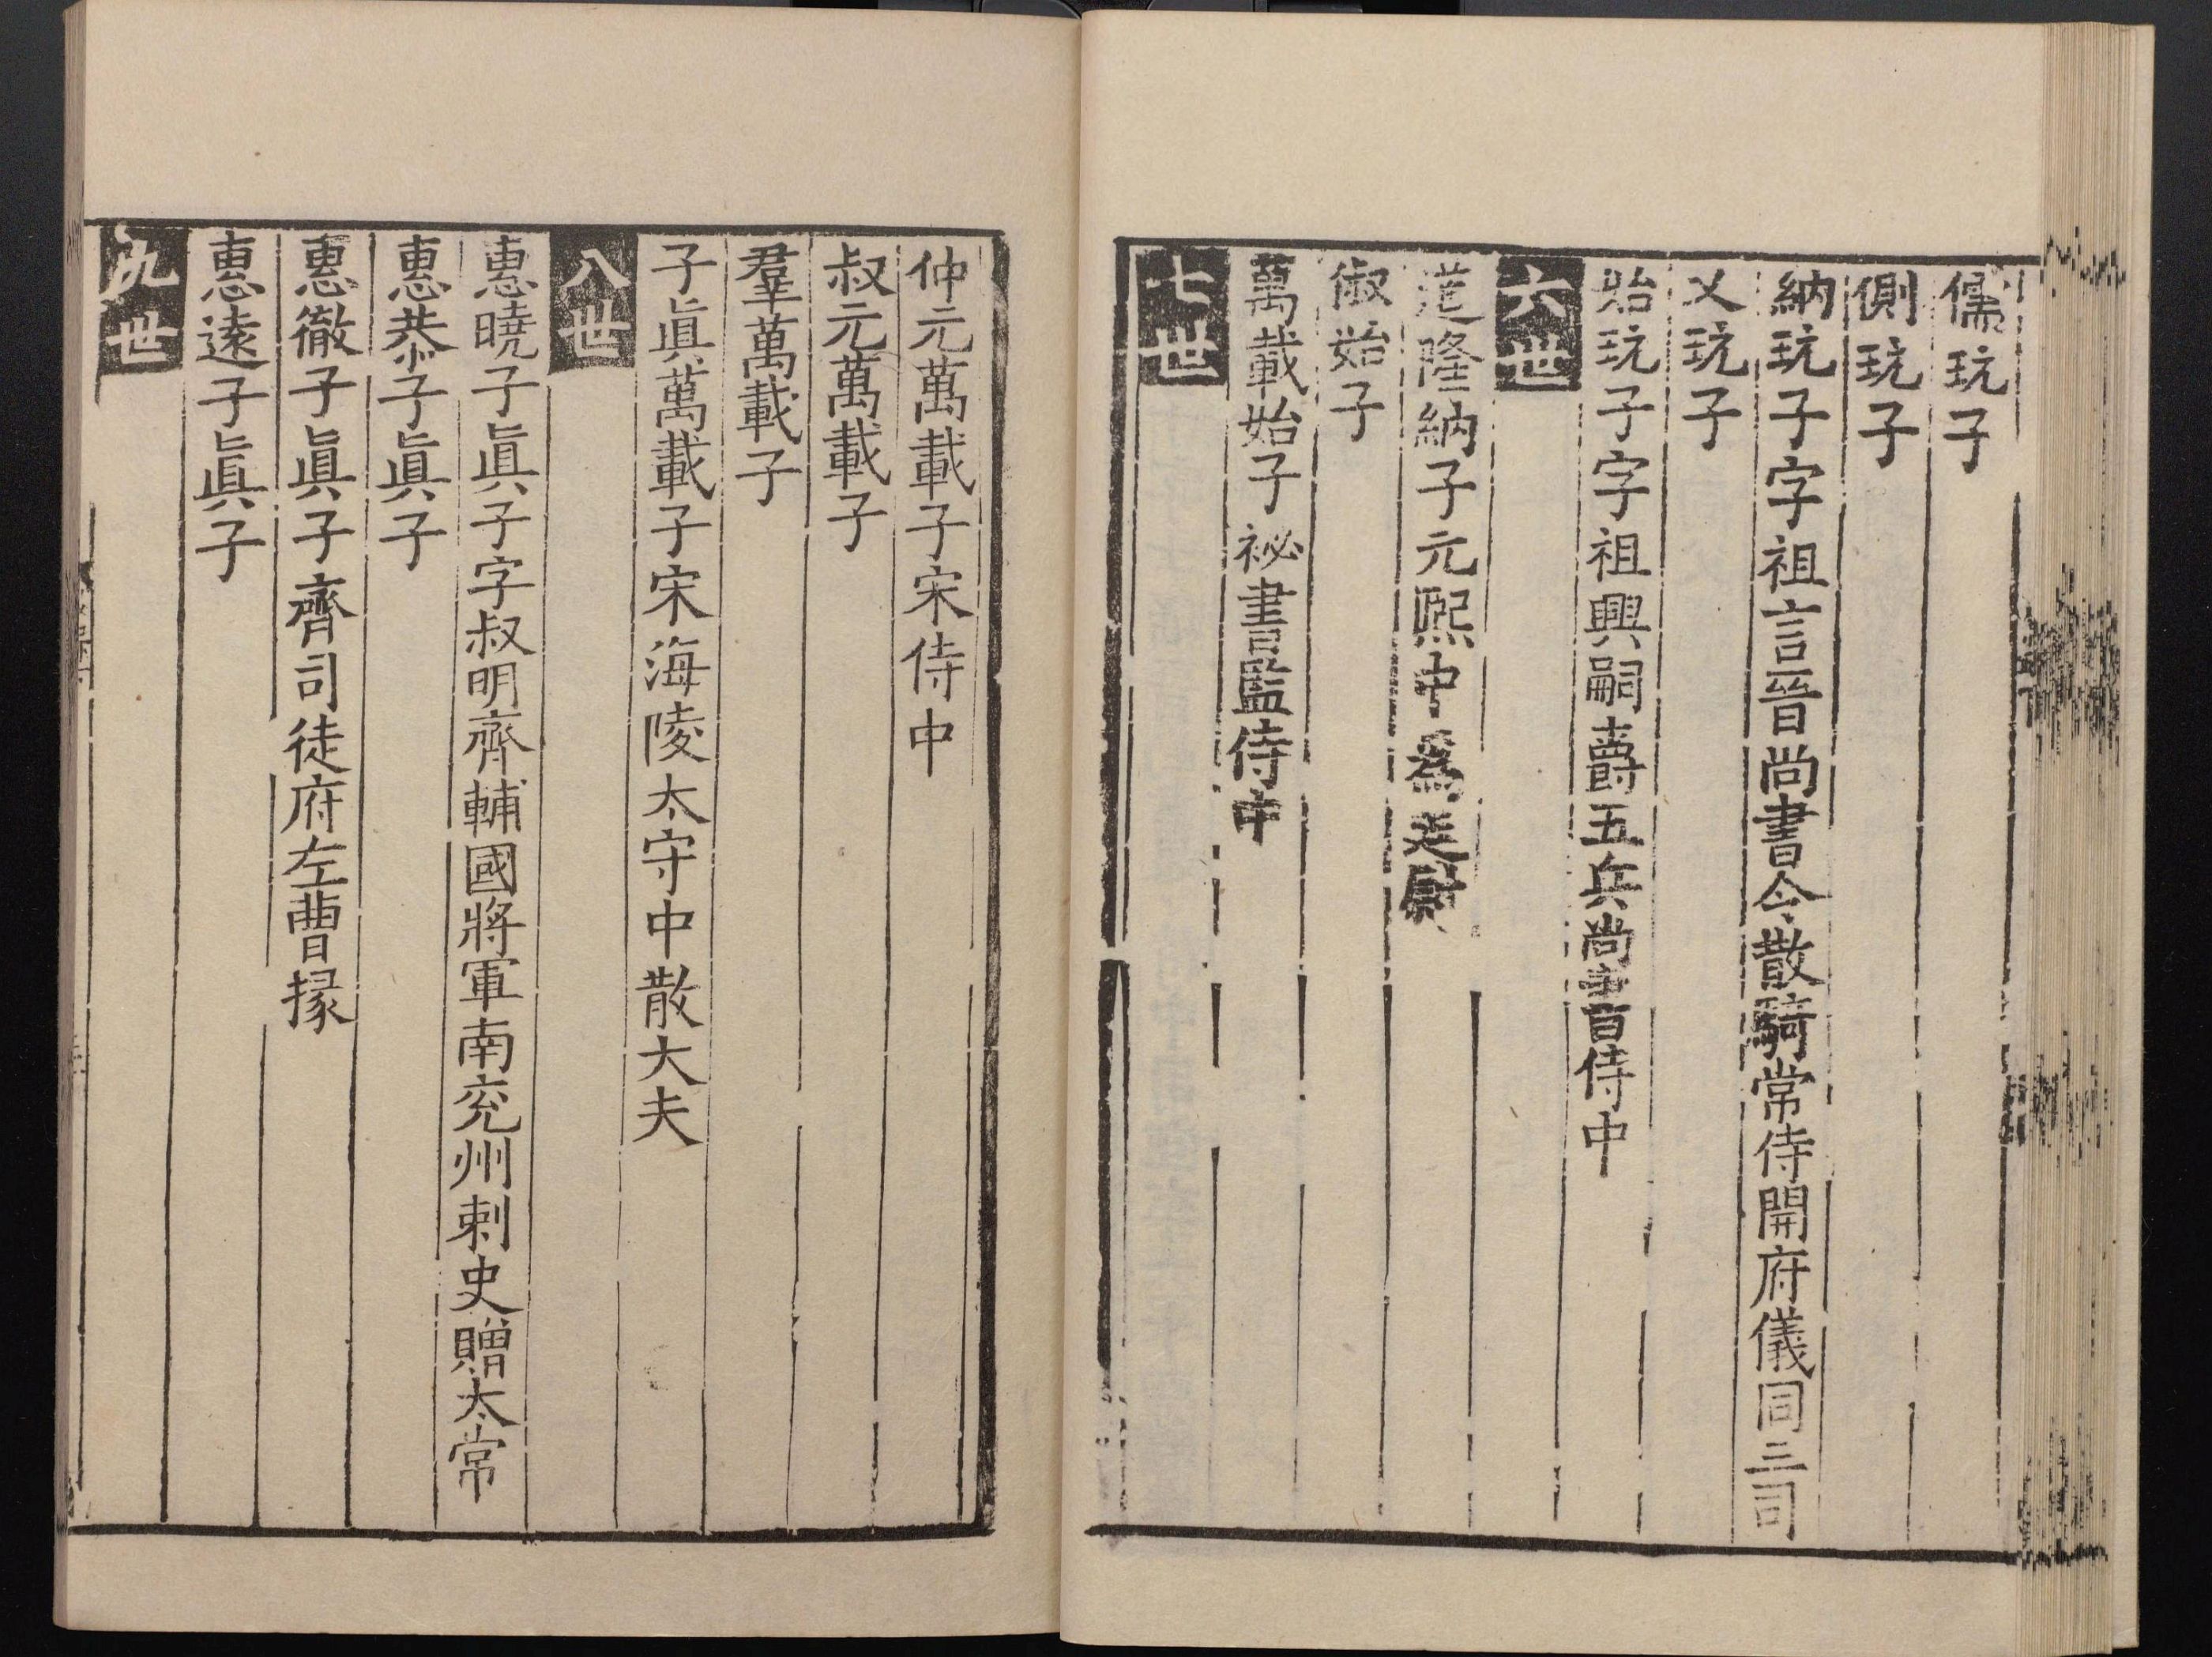 儒玩子
側玩子
納玩子字祖言晉尚書令散騎常侍開府儀同三司
乂玩子
始玩子字祖興嗣爵五兵尚書侍中
六世
道隆納子元熙中爲廷尉
俶始子
萬載始子祕書監侍中
七世
仲元萬載子宋侍中
叔元萬載子
羣萬載子
子眞萬載子宋海陵太守中散大夫
八世
惠曉子眞子字叔明齊輔國將軍南兖州刺史贈太常
惠恭子眞子
惠徹子眞子齊司徒府左曹掾
惠遠子眞子
九世